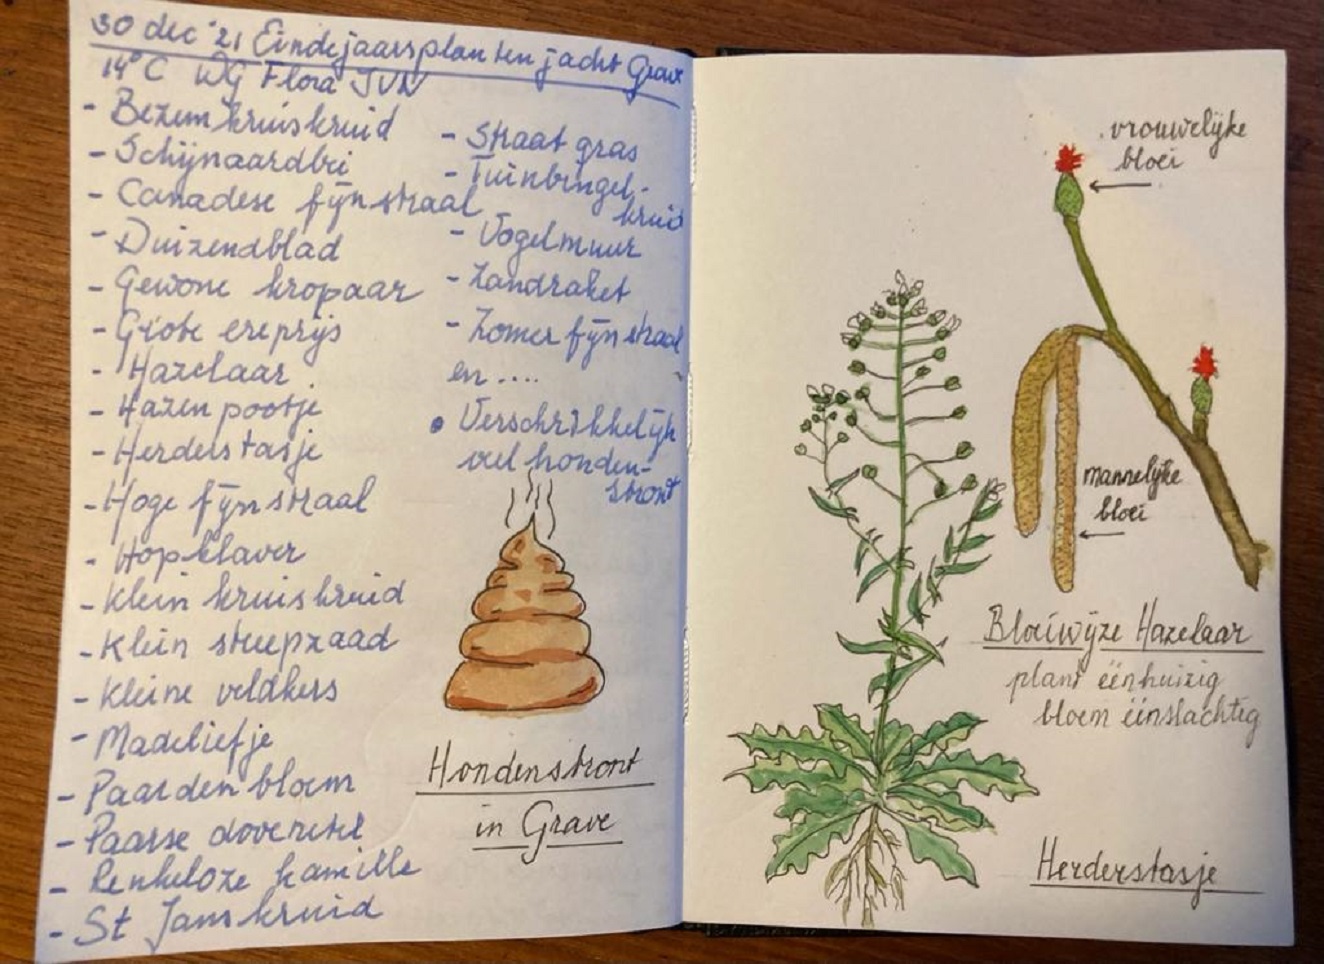 30 dec '21 Eindejaarsplantenjacht Grave
14°C WG Flora IVN
- Bezemkruiskruid
- Schijnaardbei
- Canadese fijnstraal
- Duizendblad
- Gewone kropaar
- Grote ereprijs
- Hazelaar
- Hazenpootje
- Herderstasje
- Hoge fijnstraal
- Hopklaver
- Klein kruiskruid
- Klein streepzaad
- Kleine veldkers
- Madeliefje
- Paardenbloem
- Paarse dovenetel
- Reukeloze kamille
- St Janskruid
- Straatgras
- Tuinbingel-
kruid
- Vogelmuur
- Zandraket
- Zomerfijnstraal
en....
• Verschrikkelijk
veel honden-
stront
Hondenstront
in Grave
vrouwelijke
bloei
mannelijke
bloei
Bloeiwijze Hazelaar
plant éénhuizig
bloem éénslachtig
Herderstasje